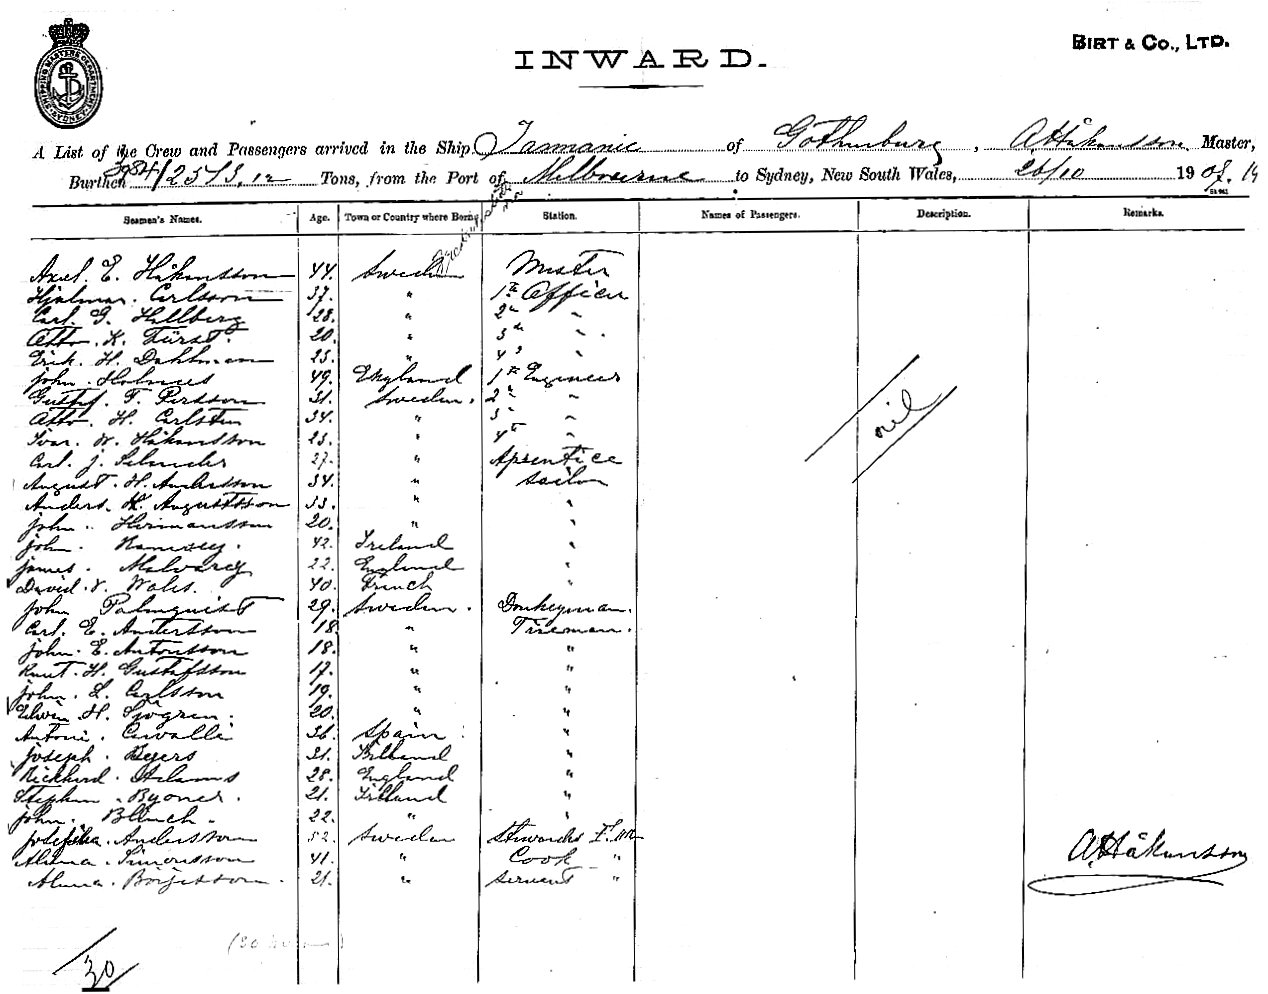 INWARD.
BIRT & CO., LTD.
SHIPPING MASTERS DEPARTMENT SYDNEY
A List of the Crew and Passengers arrived in the Ship Tasmanic of Gothenburg, A Håkansson Master,
Burthen 3984/2513.12 Tons, from the Port of Melbourne to Sydney, New South Wales, 26/10 1908.
Seamen's Names. Age. Town or Country where Born. Station. Names of Passengers. Description. Remarks.
Axel. E. Håkansson 44. Sweden Master
Hjalmar. Carlsson 37. " 1st Officer
Carl. G. Hallberg 28. " 2nd "
Otto. K. Fürst. 20. " 3rd "
Erik. H. Dahlman 23. " 4th "
John. Holmes 49. England 1st Engineer
Gustaf. F. Persson 31. Sweden. 2nd "
Otto. H. Carlsten 34. " 3rd "
Ivar. W. Håkansson 23. " 4th "
Carl. J. 27. " Aprentice
August. H. Andersson 34. " Sailor
Anders. K. Augustsson 33. " "
John. Hermansson 20. " "
John. Ramsey. 42. Ireland "
James. 22. England "
David. V. Wales. 40. French "
John Palmquist 29. Sweden. Donkeyman.
Carl. E. Andersson 18. " Fireman.
John. E. Antonsson 18. " "
Knut. H. Gustafsson 17. " "
John. L. Carlsson 19. " "
Edwin H. Sjögren. 20. " "
Antoni. Cavalli 36. Spain "
Joseph. Byers 31. "
Rickhard. Adams 28. England "
Stephen. 21. "
John. 22. " "
Josefina. Andersson 52. Sweden
Alma. Simonsson 41. " Cook "
Alma. Börjesson. 21. " Servant "
nil
A. Håkansson
30